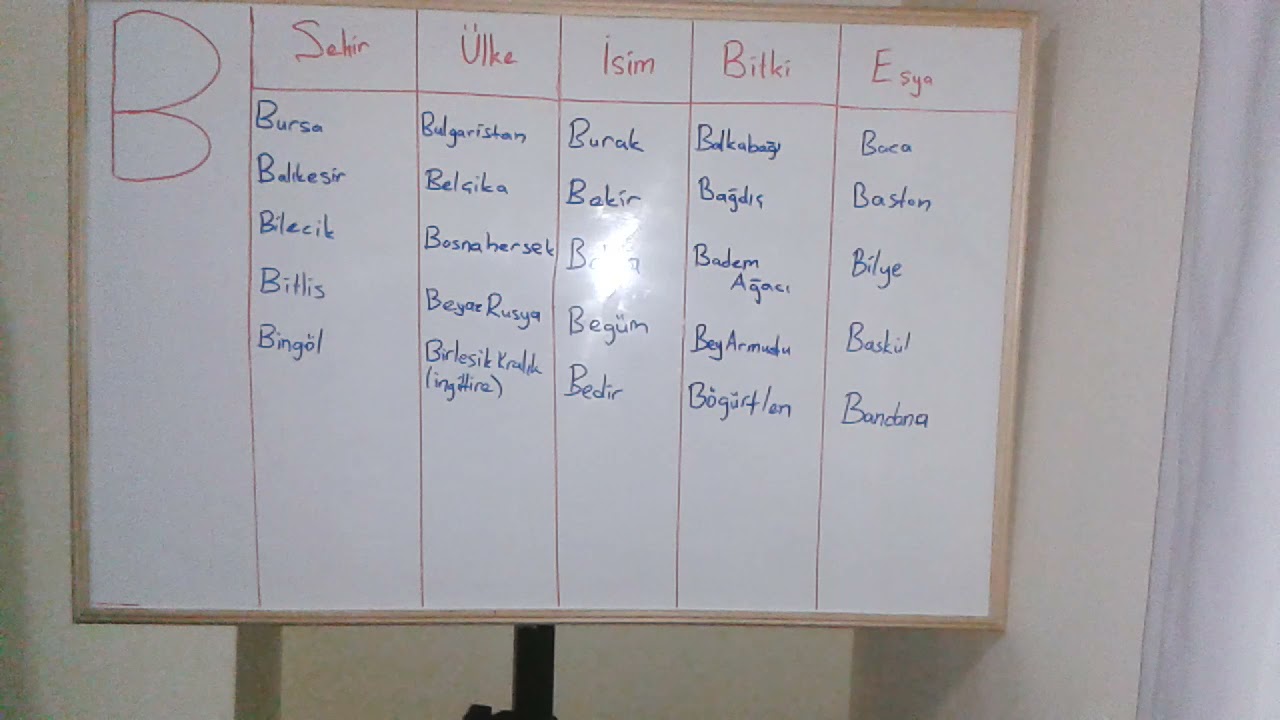 B
Şehir Ülke İsim Bitki Eşya
Bursa Bulgaristan Burak Balkabağı Baca
Balıkesir Belçika Bekir Bağdıç Baston
Bilecik Bosnahersek Badem Bilye
Ağacı
Bitlis Beyaz Rusya Begüm Bey Armudu Baskül
Bingöl Birleşik Kralık Bedir Böğürtlen Bandana
(ingiltire)